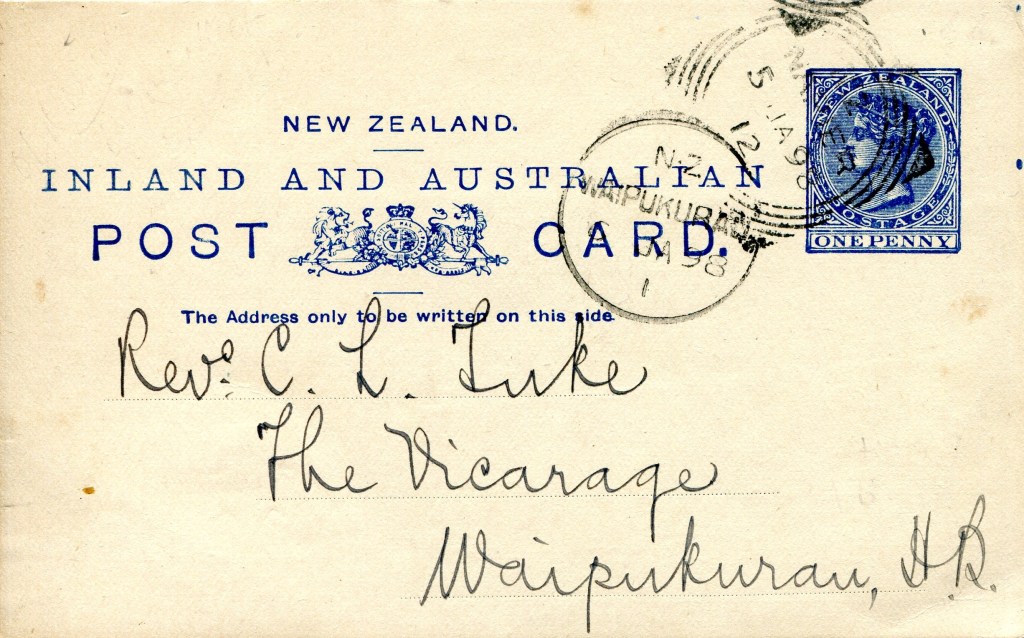 NEW ZEALAND.
INLAND AND AUSTRALIAN
POST CARD.
The Address only to be written on this side.
NEW ZEALAND
POSTAGE
ONE PENNY
5 JA 98
12
N.Z
WAIPUKURAU
JA 98
1
Revd. C. L. Tuke
The Vicarage
Waipukurau, H.B.